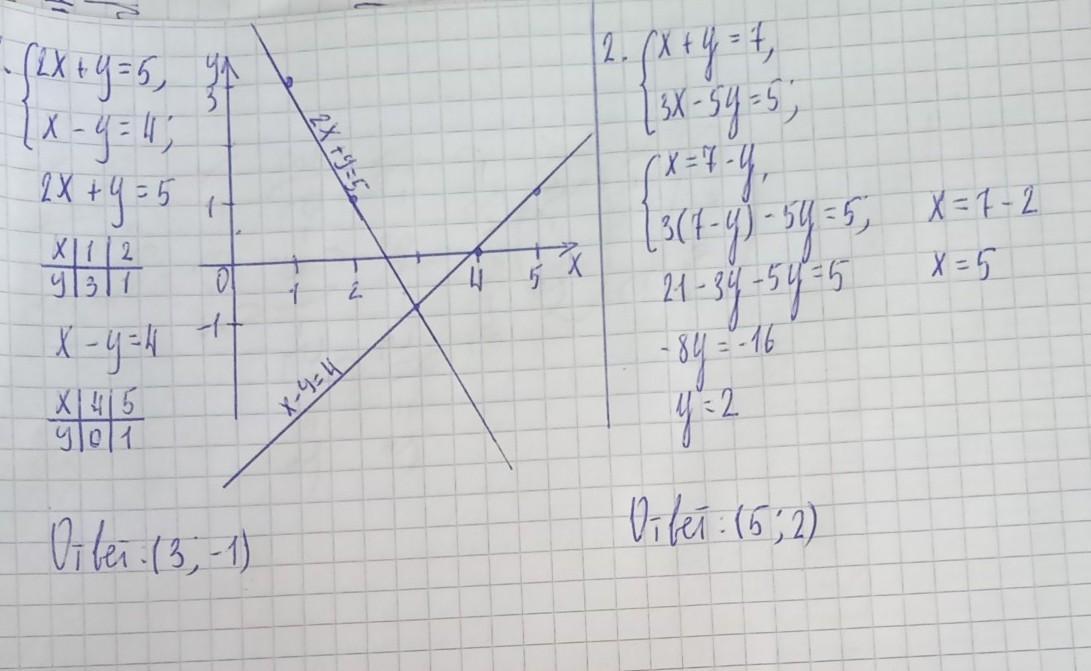 {2x + y = 5,
x - y = 4;
2x + y = 5
x | 1 | 2
y | 3 | 1
x - y = 4
x | 4 | 5
y | 0 | 1
y
3
1
0
1
2
4
5
x
-1
2x + y = 5
x - y = 4
Ответ: (3; -1)
2. {x + y = 7,
3x - 5y = 5;
{x = 7 - y,
3(7 - y) - 5y = 5;
21 - 3y - 5y = 5
-8y = -16
y = 2
x = 7 - 2
x = 5
Ответ: (5; 2)